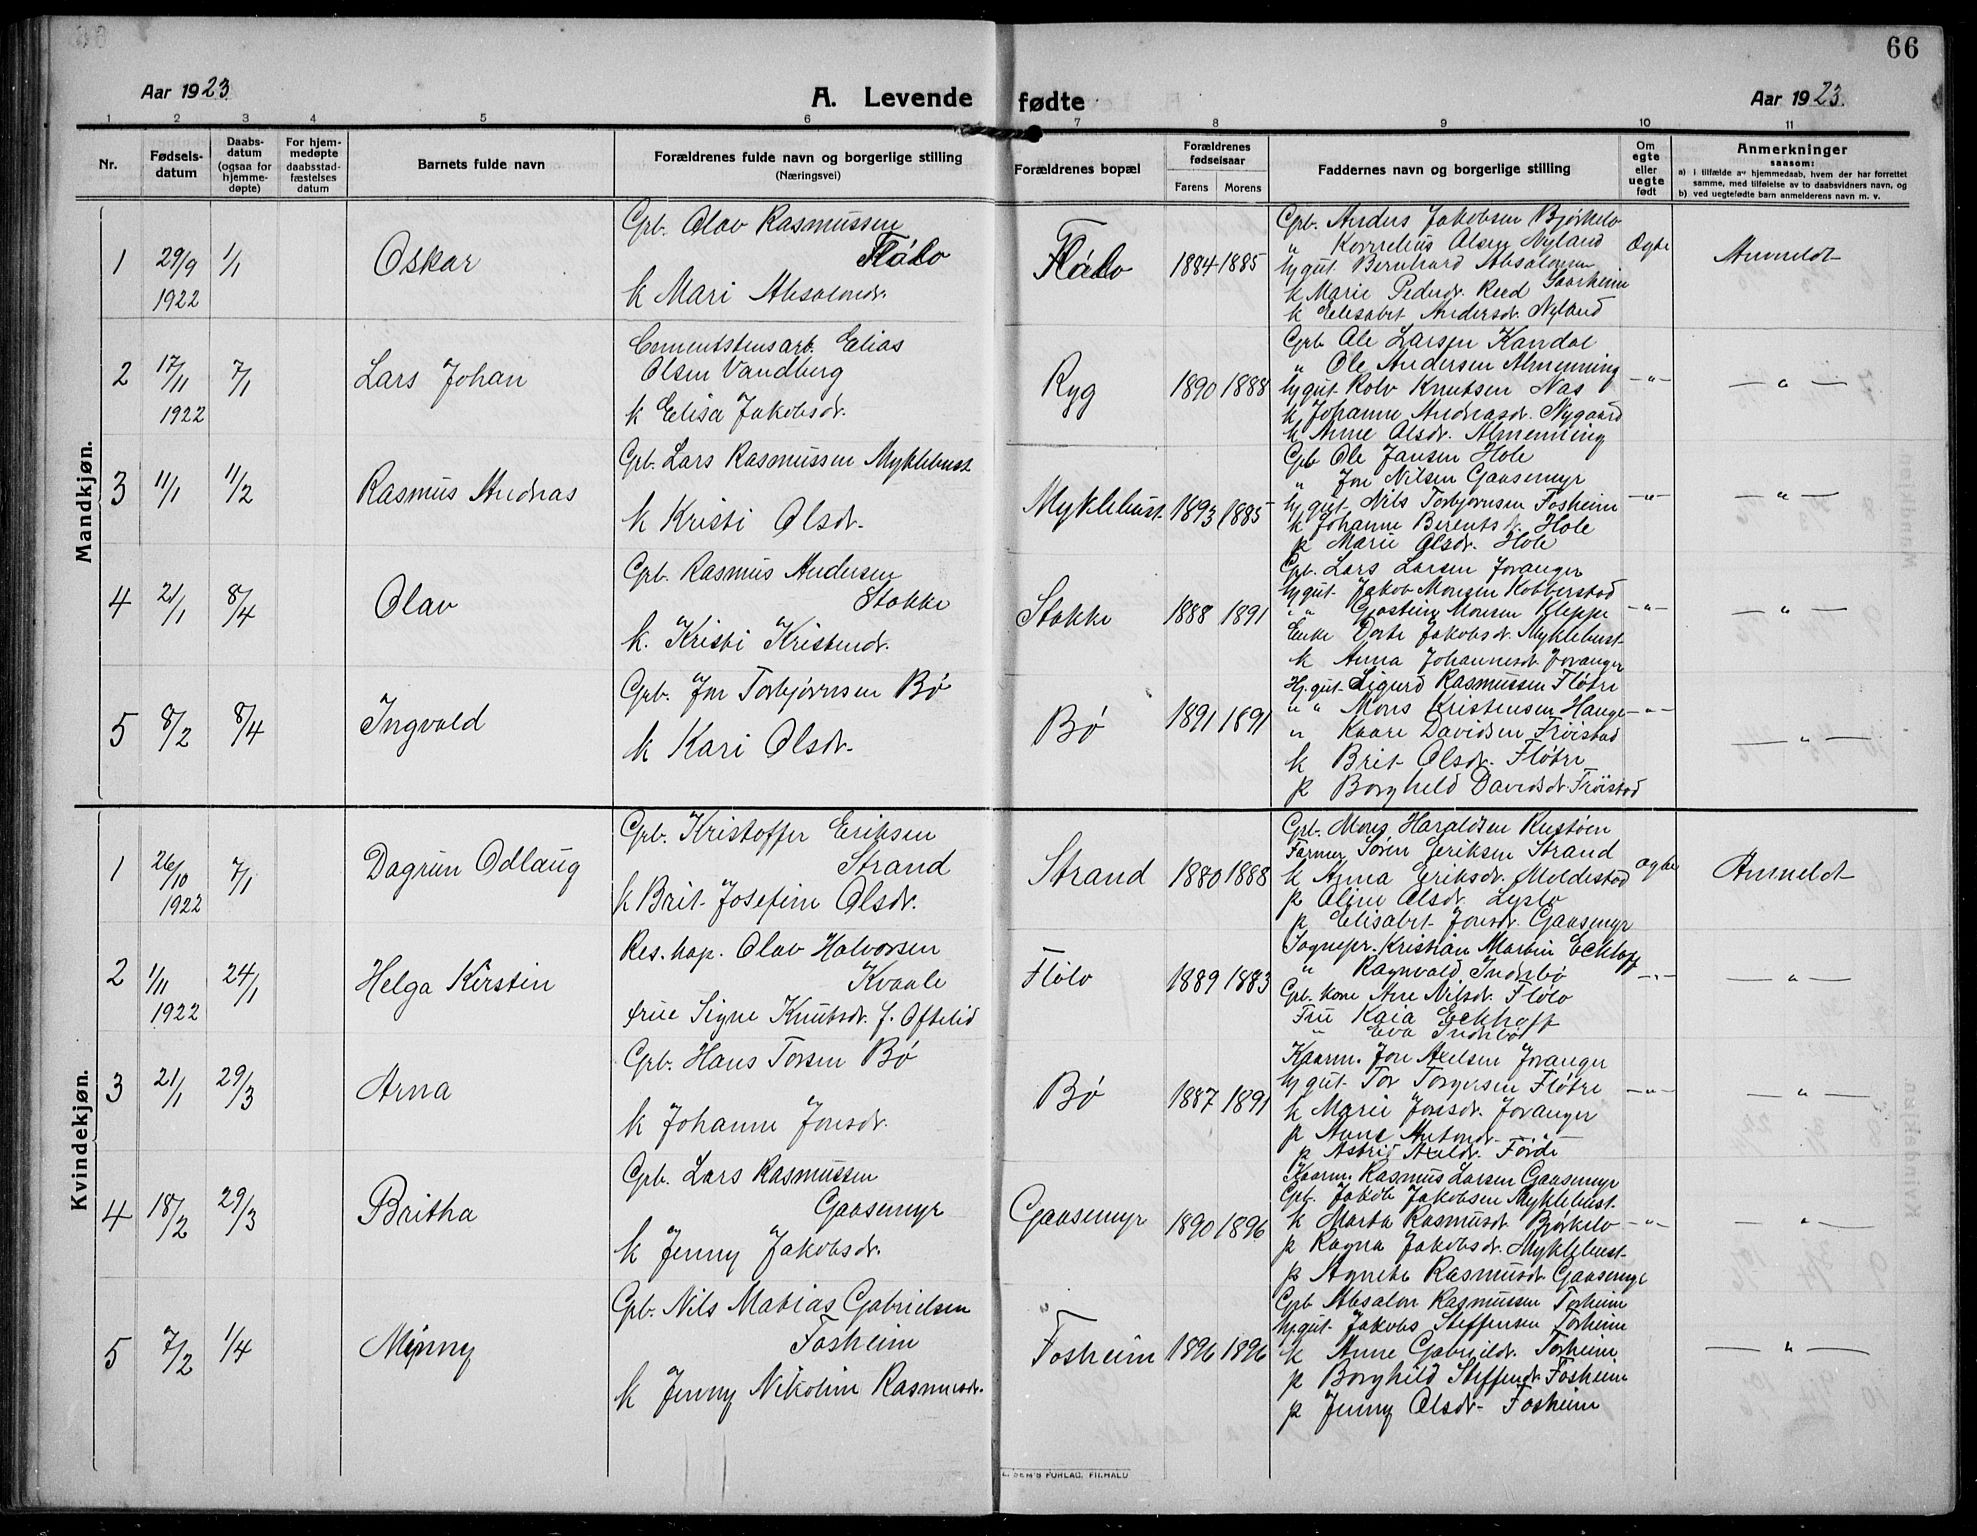 66
Aar 1923.
A. Levende fødte
Aar 1923.
1 2 3 4 5 6 7 8 9 10 11
Nr.
Fødselsdatum
Daabsdatum (ogsaa for hjemmedøpte)
For hjemmedøpte daabsstadfæstelses datum
Barnets fulde navn
Forældrenes fulde navn og borgerlige stilling
(Næringsvei)
Forældrenes bopæl
Forældrenes fødselsaar
Farens Morens
Faddernes navn og borgerlige stilling
Om egte eller uegte født
Anmerkninger
saasom:
a) i tilfælde av hjemmedaab, hvem der har forrettet
samme, med tilføielse av to daabsvidners navn, og
b) ved uegtefødte barn anmelderens navn m. v.
Mandkjøn.
1 29/9 1922 1/1 Oskar
Grb. Olav Rasmussen
Flölo
k Mari Absalonsdr.
Flölo 1884 1885
Grb. Anders Jakobsen Bjørkelo
" Kornelius Olsen Nyland
hj gut. Bernhard Absalonsen
k Marie Pedersdr. Reed Gaarheim
k Elisabet Andersdr. Nyland
Ægte Anmeldt
2 17/11 1922 7/1 Lars Johan
Cementstensarb. Elias
Olsen Vandberg
k Elisa Jakobsdr.
Ryg 1890 1888
Grb Ole Larsen Kandal
" Ole Andersen Almenning
hj gut Rolv Knutsen Nas
k Johanne Andreasdr. Nygaard
k Anne Olsdr. Almenning
—"— — " —
3 11/1 11/2 Rasmus Andreas
Grb. Lars Rasmussen Myklebust
k Kristi Olsdr.
Myklebust 1893 1885
Grb Ole Jansen Hole
" Jon Nilsen Gaasemyr
hj gut Nils Torbjørnsen Fosheim
k Johanne Berentsdr. Hole
p Marie Olsdr. Hole
—"— — " —
4 21/1 8/4 Olav
Grb. Rasmus Andersen
Stokke
k. Kristi Kristensdr.
Stokke 1888 1891
Grb. Lars Larsen Joranger
hj gut Jakob Monsen Kobberstad
" " Gjostein Monsen Kleppe
Enke Dorte Jakobsdr. Myklebust
k Anna Johannesdr. Joranger
—"— — " —
5 8/2 8/4 Ingvald
Grb. Jon Torbjørnsen Bø
k Kari Olsdr.
Bø 1891 1891
Hj. gut Sigurd Rasmussen Fløtre
" " Mons Kristensen Hauge
" Kaare Davidsen Frøistad
k Brit Olsdr. Fløtre
p Borghild Davidsdr. Frøistad
—"— — " —
Kvindekjøn.
1 26/10 1922 7/1 Dagrun Odlaug
Grb. Kristoffer Eriksen
Strand
k Brit Josefine Olsdr.
Strand 1880 1888
Grb. Mons Haraldsen Rustøen
Farmer Søren Eriksen Strand
k Anna Eriksdr. Moldestad
p Oline Olsdr. Lyslo
p Elisabet Jonsdr. Gaasemyr
Ægte Anmeldt
2 1/11 1922 24/1 Helga Kirstin
Res. kap. Olav Halvorsen
Kvaale
Frue Signe Knutsdr. f. Oftelid
Flölo 1889 1883
Sognepr. Kristian Martin Eckhoff
" Ragnvald Indrebø
Grb. kone Ane Nilsdr. Flölo
Fru Kaia Eckhoff
" Eva Indrebø
—"— — " —
3 21/1 29/3 Arna
Grb. Hans Torsen Bø
k Johanne Jonsdr.
Bø 1887 1891
Kaarm. Jon Axelsen Joranger
hj gut Tor Torgersen Fløtre
k Marie Jonsdr. Joranger
p Anne Antonsdr. "
p Astrid Axeldr. Førde
—"— — " —
4 18/2 29/3 Britha
Grb. Lars Rasmussen
Gaasemyr
k Jenny Jakobsdr.
Gaasemyr 1890 1896
Kaarm. Rasmus Larsen Gaasemyr
Grb. Jakob Jakobsen Myklebust
k Marta Rasmusdr. Bjørkelo
p Ragna Jakobsdr. Myklebust
p Agnete Rasmusdr Gaasemyr
—"— — " —
5 7/2 1/4 Minny
Grb. Nils Matias Gabrielsen
Fosheim
k Jenny Nikoline Rasmusdr.
Fosheim 1896 1896
Grb Absalon Rasmussen Fosheim
hj gut Jakobs Steffensen Fosheim
k Anne Gabrieldr. Fosheim
p Borghild Steffensdr. Fosheim
p Jenny Olsdr. Fosheim
— " —
SEM'S FORLAG, FR.HALD